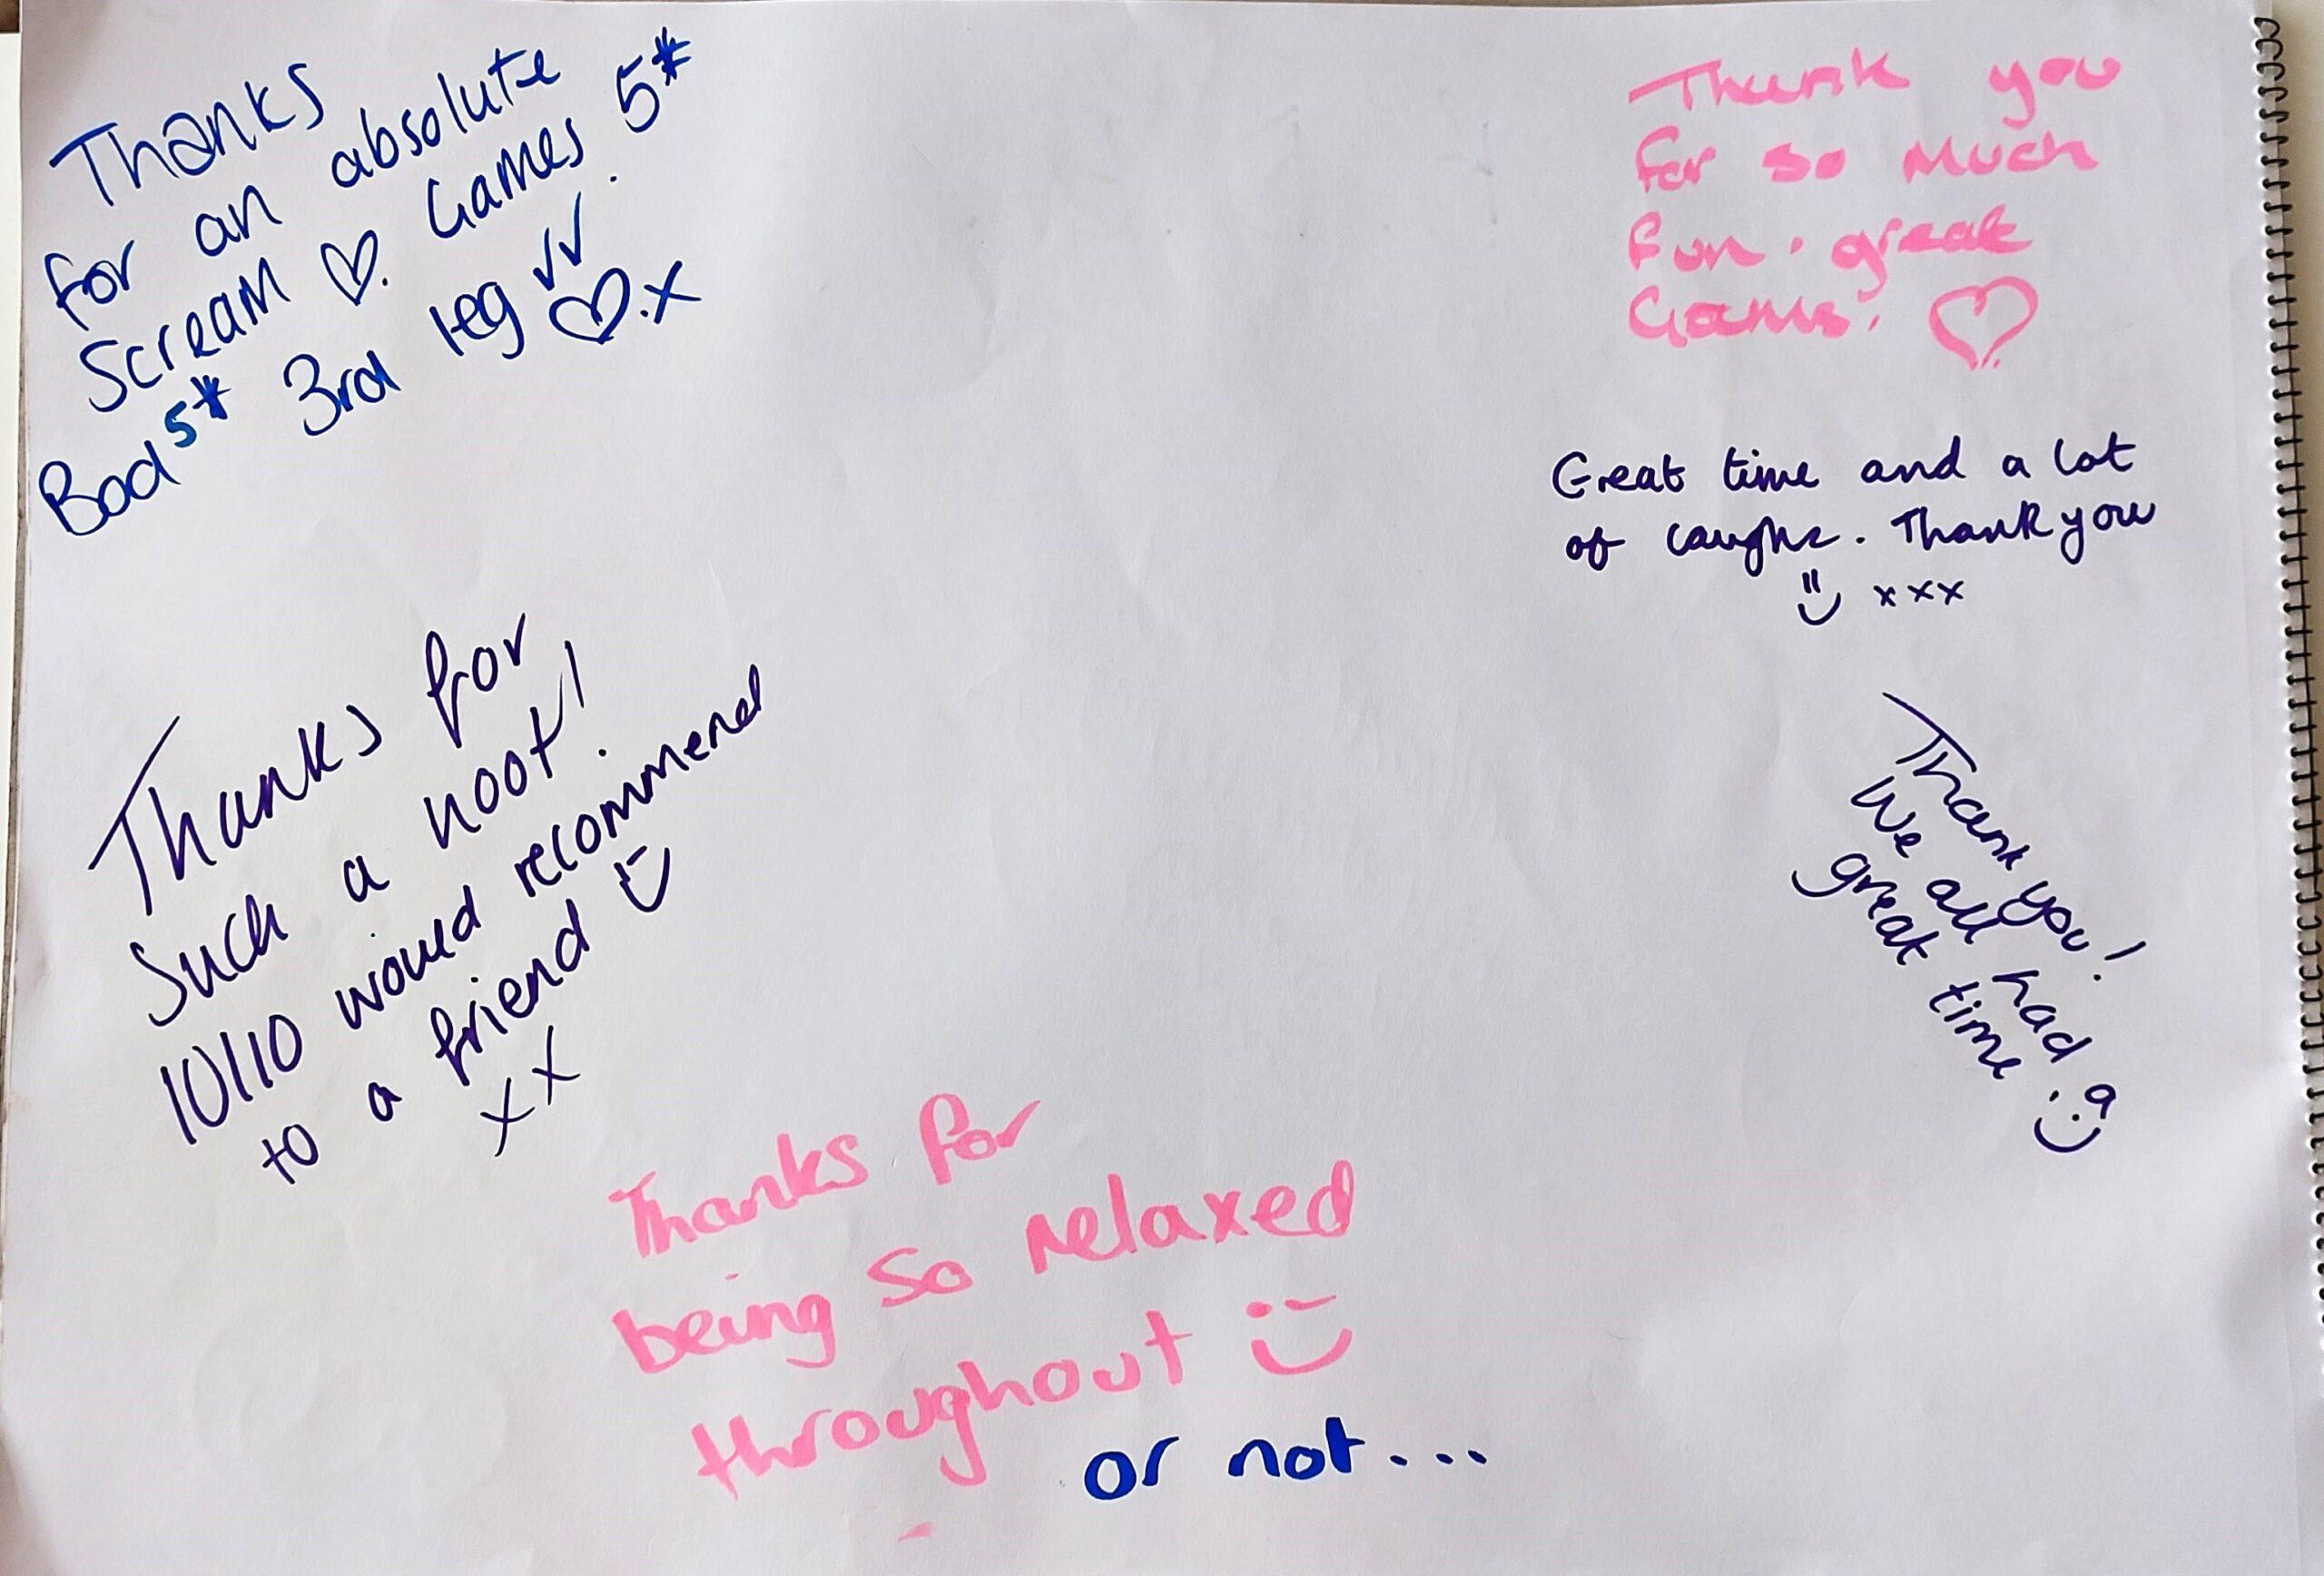 Thanks
for an absolute
Scream ♡. Games 5*
Bod 5* 3rd leg ✓✓
♡.x
Thank you
for so much
fun. great
Games. ♡
Great time and a lot
of laughs. Thank you
xxx
Thanks for
Such a hoot!
10/10 would recommend
to a friend
xx
Thank you!
We all had a
great time :)
Thanks for
being so relaxed
throughout
or not...